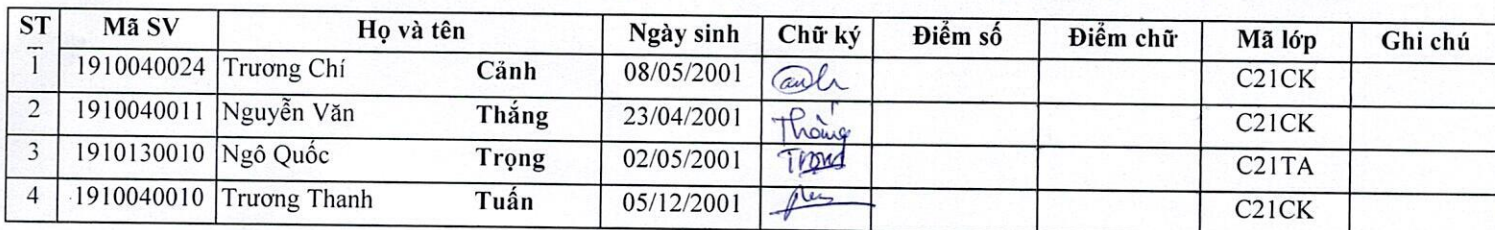 ST Mã SV Họ và tên Ngày sinh Chữ ký Điểm số Điểm chữ Mã lớp Ghi chú
1 1910040024 Trương Chí Cảnh 08/05/2001 Canh C21CK
2 1910040011 Nguyễn Văn Thắng 23/04/2001 Thắng C21CK
3 1910130010 Ngô Quốc Trọng 02/05/2001 Trọng C21TA
4 1910040010 Trương Thanh Tuấn 05/12/2001 C21CK